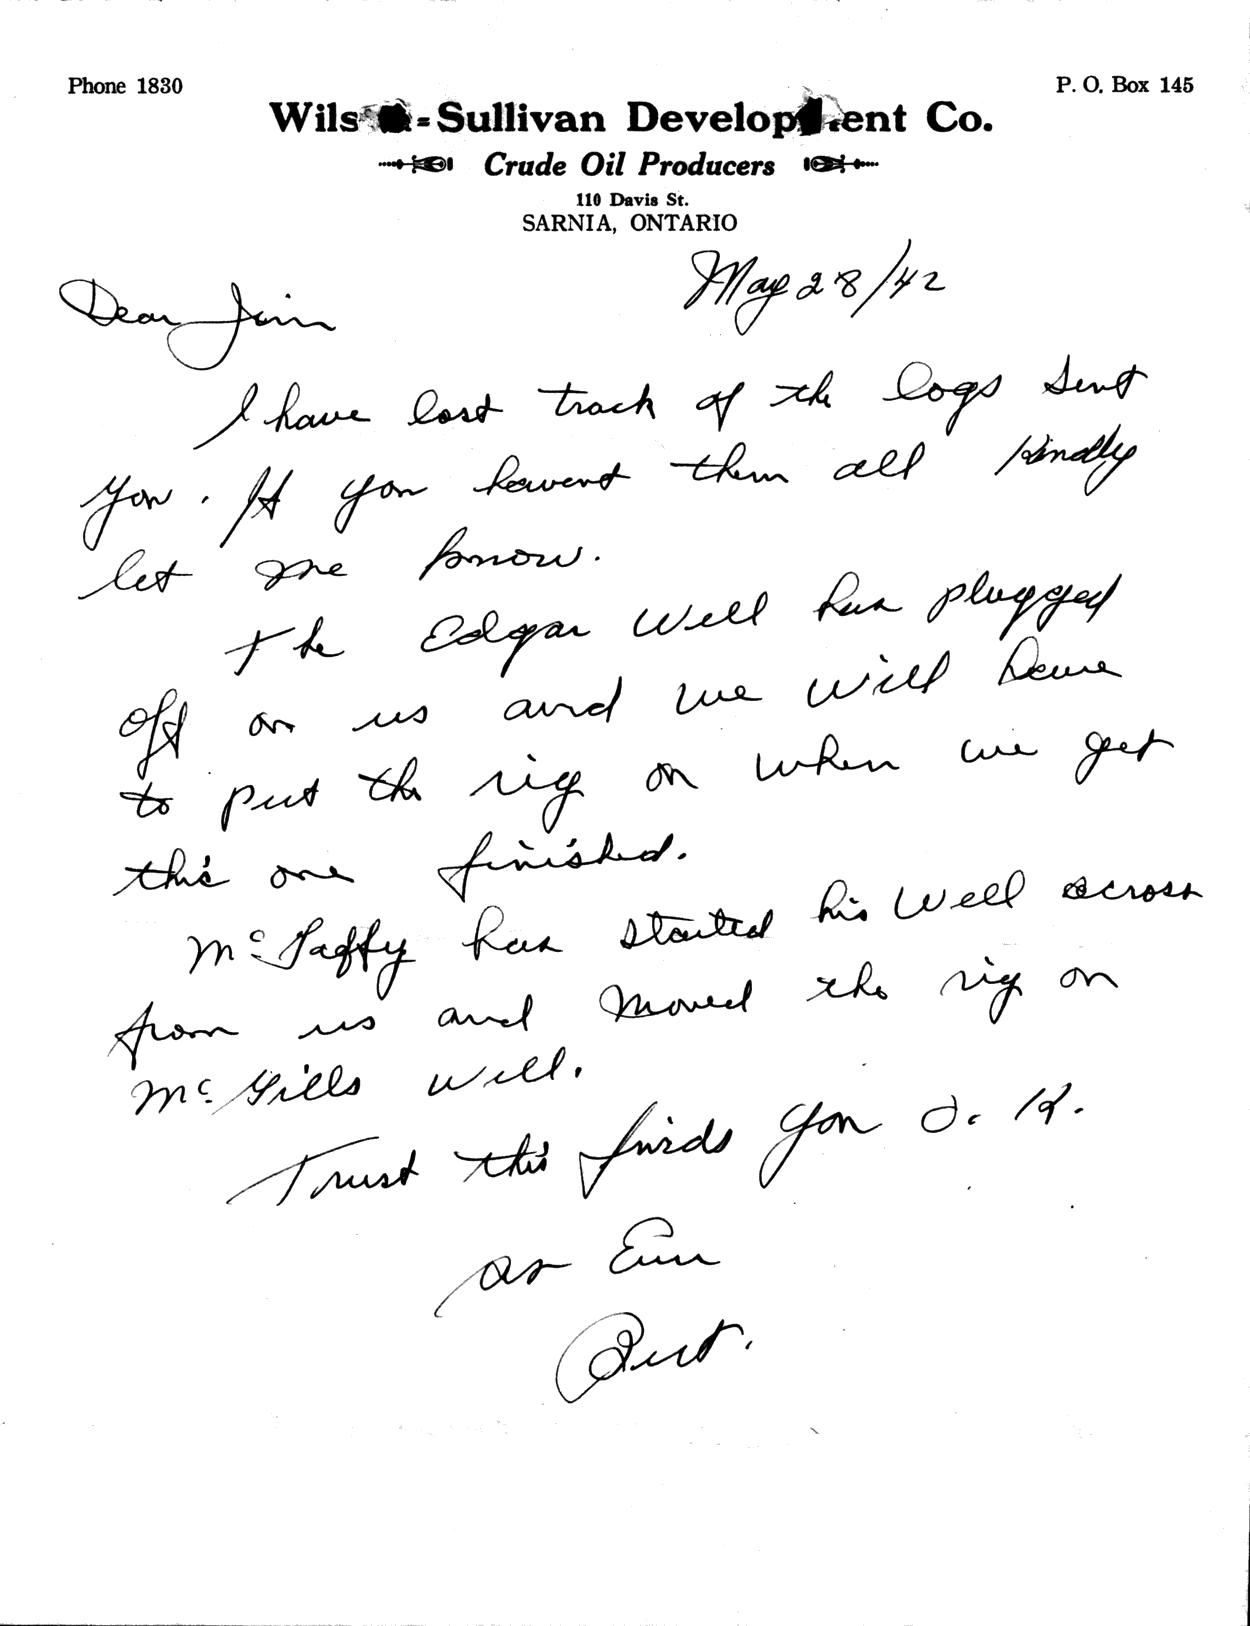 Phone 1830
P. O. Box 145
Wils-Sullivan Development Co.
Crude Oil Producers
110 Davis St.
SARNIA, ONTARIO
May 28/42
Dear Jim
I have lost track of the logs sent
you. If you havent them all kindly
let me know.
The Edgar Well has plugged
off on us and we will have
to put the rig on when we get
this one finished.
Mc has started his well across
from us and moved the rig on
McGills well.
Trust this finds you O.K.
as Ever
Bert.